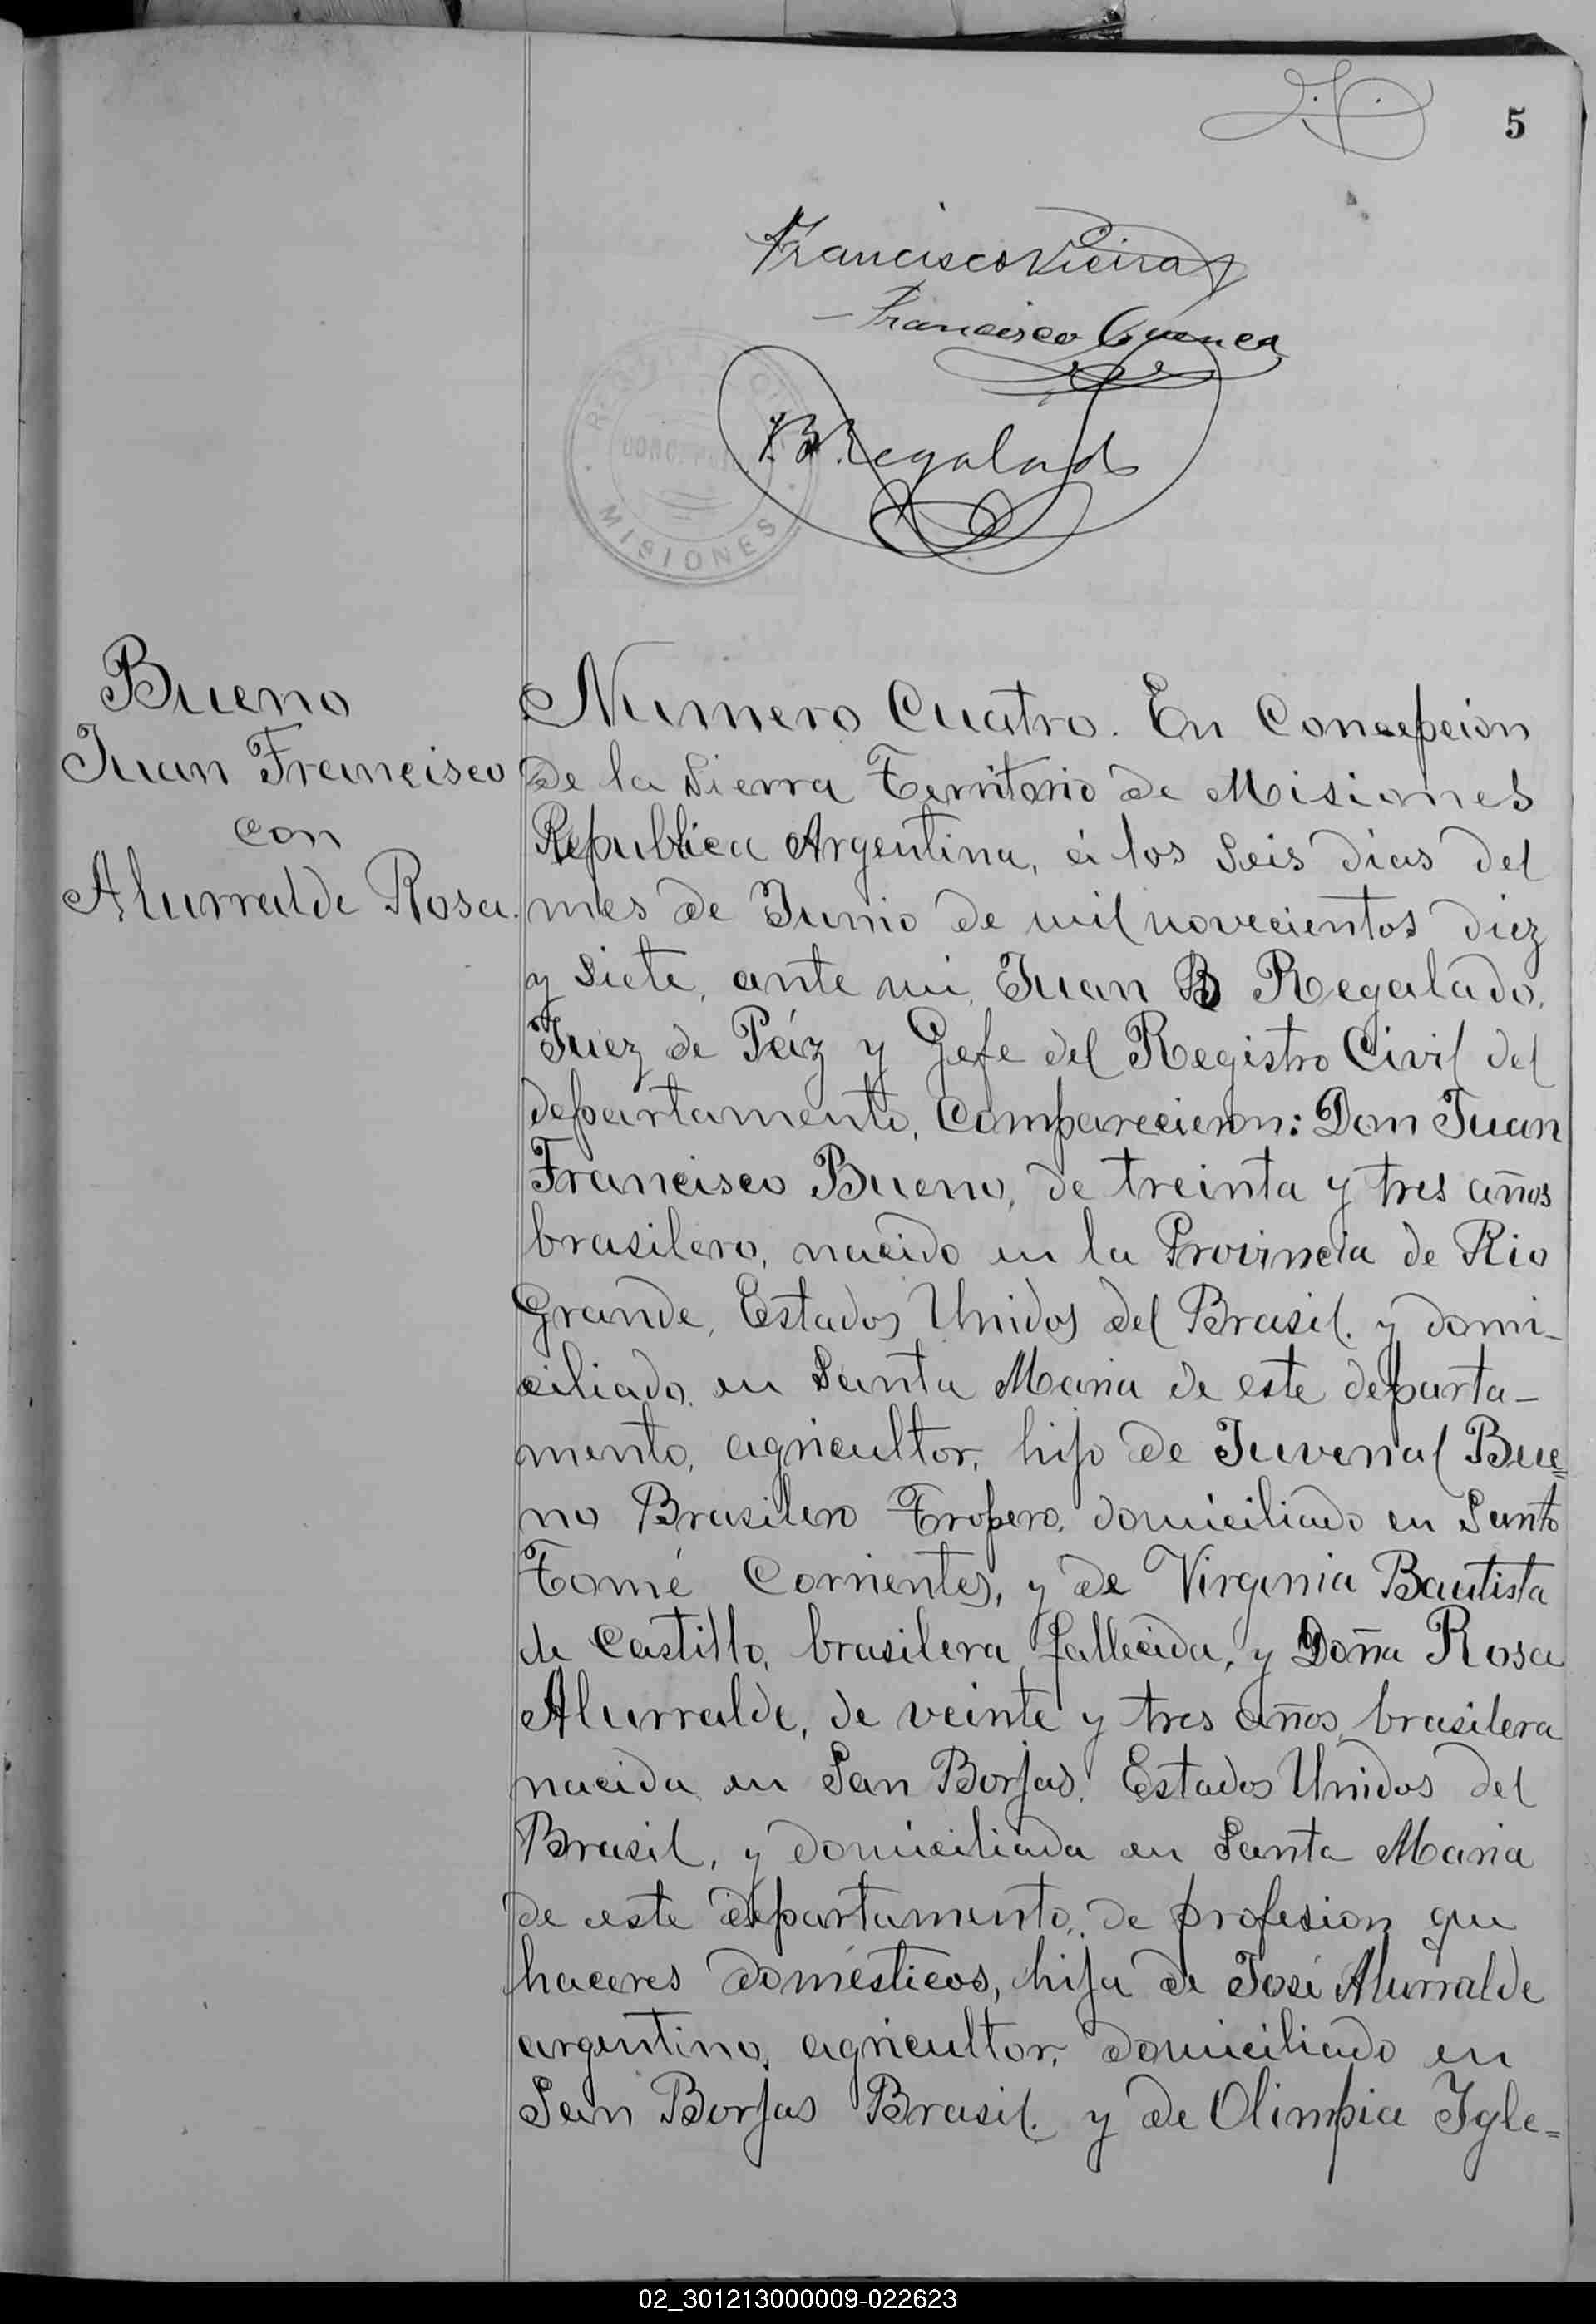 5
Francisco Vieira
Francisco Cuenca
J. B. Regalado
REGISTRO CIVIL
MISIONES
Bueno
Juan Francisco
con
Alurralde Rosa.
Numero Cuatro. En Concepcion
de la Sierra Territorio de Misiones
Republica Argentina, á los Seis dias del
mes de Junio de mil novecientos diez
y siete, ante mi, Juan B Regalado,
Juez de Páz y Gefe del Registro Civil del
departamento, Comparecieron: Don Juan
Francisco Bueno, de treinta y tres años
brasilero, nacido en la Provincia de Rio
Grande, Estados Unidos del Brasil. y domi-
ciliado en Santa Maria de este departa-
mento, agricultor, hijo de Juvenal Bue=
no Brasilero Tropero, domiciliado en Santo
Tomé Corrientes, y de Virginia Bautista
de Castillo, brasilera, fallecida, y Doña Rosa
Alurralde, de veinte y tres años, brasilera
nacida en San Borjas. Estados Unidos del
Brasil, y domiciliada en Santa Maria
de este departamento, de profesion que
haceres domésticos, hija de José Alurralde
argentino, agricultor, domiciliado en
San Borjas Brasil. y de Olimpia Igle=
02_301213000009-022623